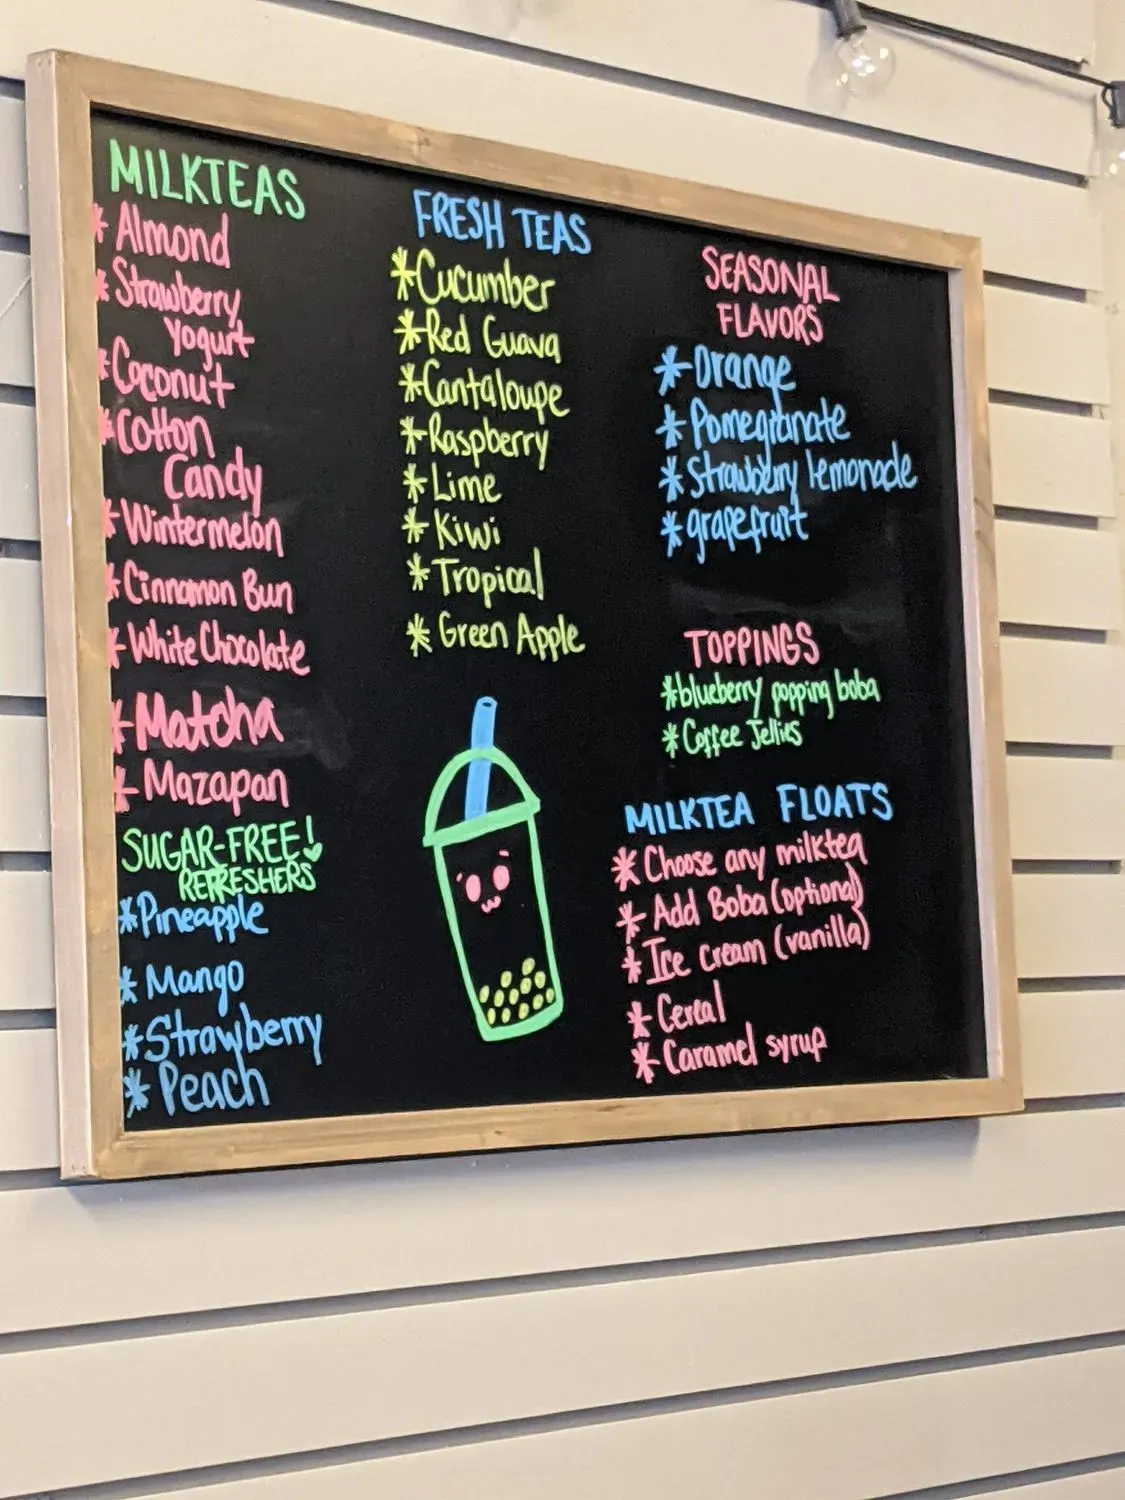 MILKTEAS
* Almond
* Strawberry
Yogurt
* Coconut
* Cotton
Candy
* Wintermelon
* Cinnamon Bun
* White Chocolate
* Matcha
* Mazapan
SUGAR-FREE!
REFRESHERS
* Pineapple
* Mango
* Strawberry
* Peach
FRESH TEAS
* Cucumber
* Red Guava
* Cantaloupe
* Raspberry
* Lime
* Kiwi
* Tropical
* Green Apple
SEASONAL
FLAVORS
* Orange
* Pomegranate
* Strawberry lemonade
* grapefruit
TOPPINGS
* blueberry popping boba
* Coffee Jellies
MILKTEA FLOATS
* Choose any milktea
* Add Boba (optional)
* Ice cream (vanilla)
* Cereal
* Caramel syrup